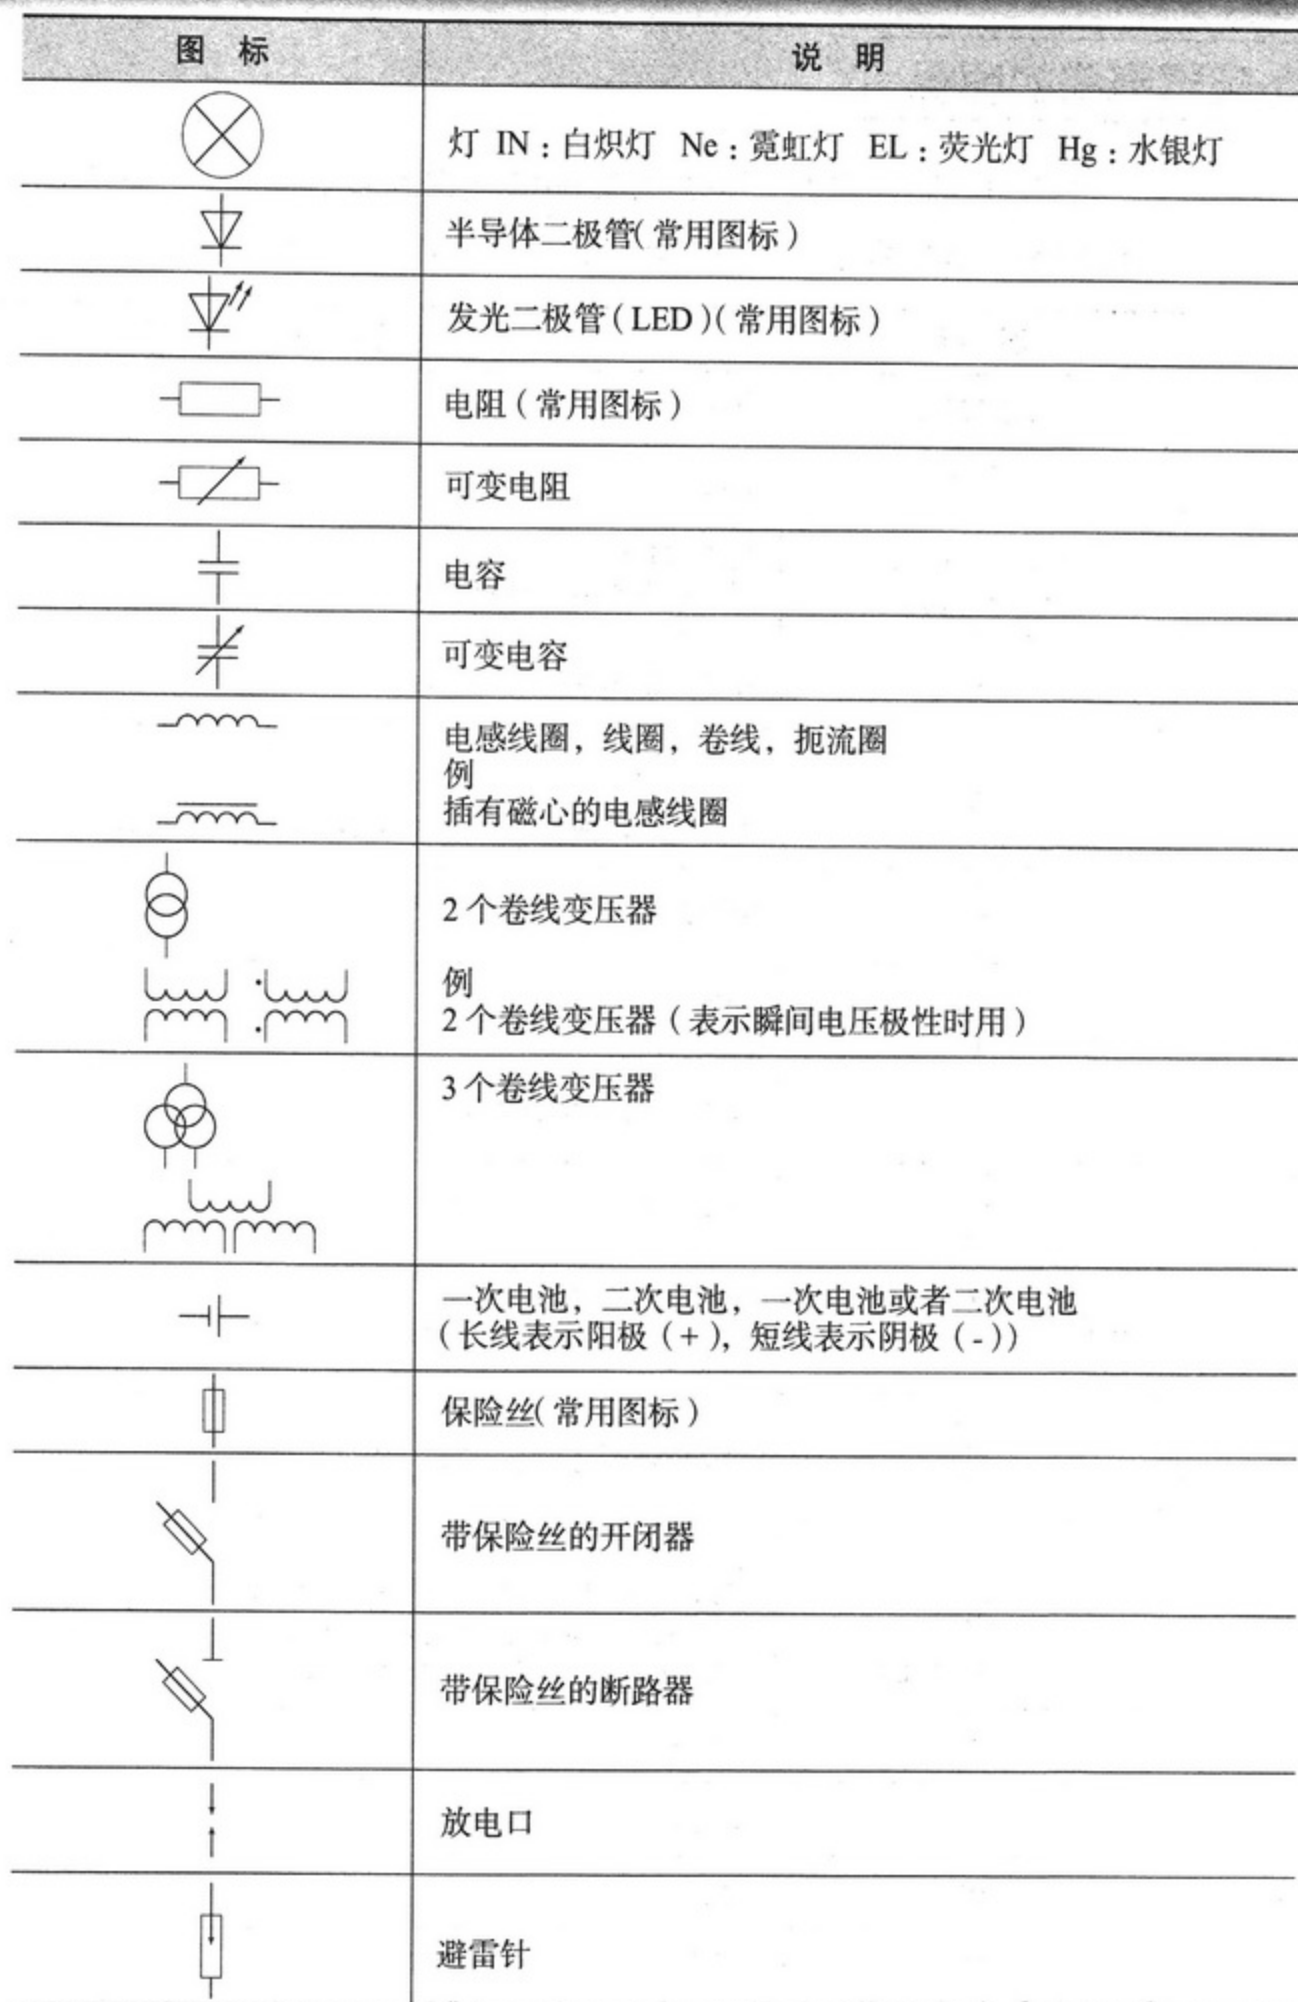 图 标 说 明
灯 IN：白炽灯 Ne：霓虹灯 EL：荧光灯 Hg：水银灯
半导体二极管（常用图标）
发光二极管（LED）（常用图标）
电阻（常用图标）
可变电阻
电容
可变电容
电感线圈，线圈，卷线，扼流圈
例
插有磁心的电感线圈
2个卷线变压器
例
2个卷线变压器（表示瞬间电压极性时用）
3个卷线变压器
一次电池，二次电池，一次电池或者二次电池
（长线表示阳极（+），短线表示阴极（-））
保险丝（常用图标）
带保险丝的开闭器
带保险丝的断路器
放电口
避雷针